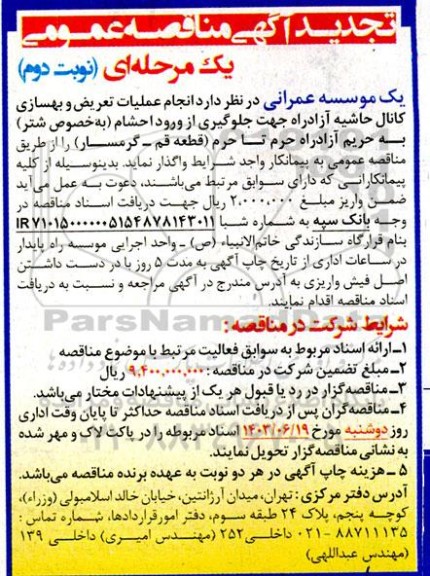 تجدید آگهی مناقصه عمومی
یک مرحله‌ای (نوبت دوم)
یک موسسه عمرانی در نظر دارد انجام عملیات تعریض و بهسازی
کانال حاشیه آزادراه جهت جلوگیری از ورود احشام (به‌خصوص شتر)
به حریم آزادراه حرم تا حرم (قطعه قم ـ گرمسار) را از طریق
مناقصه عمومی به پیمانکار واجد شرایط واگذار نماید. بدینوسیله از کلیه
پیمانکارانی که دارای سوابق مرتبط می‌باشند، دعوت به عمل می‌آید
ضمن واریز مبلغ ۲.۰۰۰.۰۰۰ ریال جهت دریافت اسناد مناقصه در
وجه بانک سپه به شماره شبا IR۷۱۰۱۵۰۰۰۰۰۰۵۱۵۴۸۷۸۱۴۳۰۱۱
بنام قرارگاه سازندگی خاتم‌الانبیاء (ص) ـ واحد اجرایی موسسه راه پایدار
در ساعات اداری از تاریخ چاپ آگهی به مدت ۵ روز با در دست داشتن
اصل فیش واریزی به آدرس مندرج در آگهی مراجعه و نسبت به دریافت
اسناد مناقصه اقدام نمایند.
شرایط شرکت در مناقصه:
۱ـ ارائه اسناد مربوط به سوابق فعالیت مرتبط با موضوع مناقصه
۲ـ مبلغ تضمین شرکت در مناقصه: ۹.۴۰۰.۰۰۰.۰۰۰ ریال
۳ـ مناقصه‌گزار در رد یا قبول هر یک از پیشنهادات مختار می‌باشد.
۴ـ مناقصه‌گران پس از دریافت اسناد مناقصه حداکثر تا پایان وقت اداری
روز دوشنبه مورخ ۱۴۰۳/۰۶/۱۹ اسناد مربوطه را در پاکت لاک و مهر شده
به نشانی مناقصه‌گزار تحویل نمایند.
۵ ـ هزینه چاپ آگهی در هر دو نوبت به عهده برنده مناقصه می‌باشد.
آدرس دفتر مرکزی: تهران، میدان آرژانتین، خیابان خالد اسلامبولی (وزراء)،
کوچه پنجم، پلاک ۲۴ طبقه سوم، دفتر امور قراردادها، شماره تماس:
۸۸۷۱۱۱۳۵ -۰۲۱ داخلی ۲۵۲ (مهندس امیری) داخلی ۱۳۹
(مهندس عبداللهی)
ParsNamadData